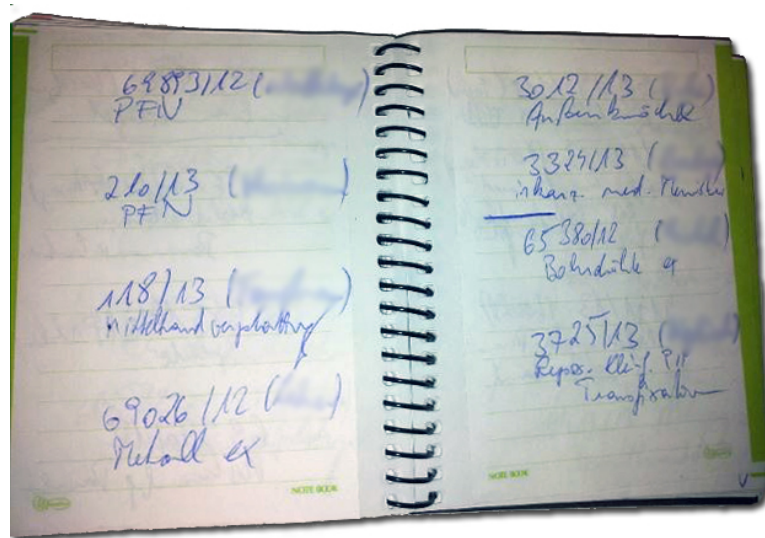 69893/12 (
PFN
210/13 (
PFN
118/13 (
Mittelhandverplattung
69026/12 (
Metall ex
NOTE BOOK
3012/13 (
Außenknöchel
3324/13 (
inkarz. med. Meniskus
65380/12 (
Bohrdrähte ex
3725/13 (
Repos. Kleinf. PIP
Transfixation
NOTE BOOK